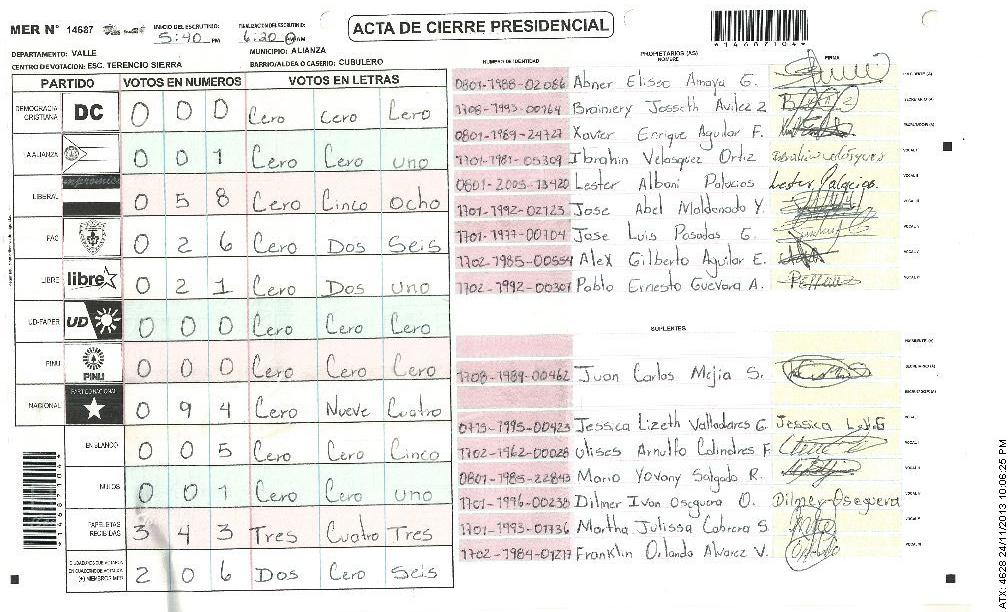 MER N° 14687
INICIO DEL ESCRUTINIO: 5:40 PM
FINALIZACION DEL ESCRUTINIO: 6:20
ACTA DE CIERRE PRESIDENCIAL
*14687104*
DEPARTAMENTO: VALLE
MUNICIPIO: ALIANZA
CENTRO DE VOTACION: ESC. TERENCIO SIERRA
BARRIO/ALDEA O CASERIO: CUBULERO
PARTIDO VOTOS EN NUMEROS VOTOS EN LETRAS
DEMOCRACIA CRISTIANA DC 0 0 0 Cero Cero Cero
LA ALIANZA 0 0 1 Cero Cero uno
LIBERAL 0 5 8 Cero Cinco Ocho
FAC 0 2 6 Cero Dos Seis
LIBRE libre 0 2 1 Cero Dos uno
UD-FAPER UD 0 0 0 Cero Cero Cero
PINU PINU 0 0 0 Cero Cero Cero
NACIONAL PARTIDO NACIONAL 0 9 4 Cero Nueve Cuatro
EN BLANCO 0 0 5 Cero Cero Cinco
NULOS 0 0 1 Cero Cero uno
PAPELETAS RECIBIDAS 3 4 3 Tres Cuatro Tres
(+) MIEMBROS MER 2 0 6 Dos Cero Seis
NUMERO DE IDENTIDAD PROPIETARIOS (AS) NOMBRE FIRMA
0801-1988-02086 Abner Eliseo Amaya G.
1708-1993-00764 Brainery Josseth Avilez Z
0801-1989-24727 Xavier Enrique Aguilar F.
1701-1981-05309 Ibrahin Velasquez Ortiz
0801-2005-13420 Lester Albani Palacios
1701-1992-02723 Jose Abel Maldonado Y.
1701-1977-00704 Jose Luis Posadas G.
1702-1985-00554 Alex Gilberto Aguilar E.
1702-1992-00301 Pablo Ernesto Guevara A.
SUPLENTES
1708-1989-00462 Juan Carlos Mejia S.
0715-1995-00423 Jessica Lizeth Valladares G.
1702-1962-00028 Ulises Arnulfo Colindres F.
0801-1985-22843 Mario Yovany Salgado R.
1701-1996-00238 Dilmer Ivan Oseguera O. Dilmer Oseguera
1701-1993-01736 Martha Julissa Cabrera S
1702-1984-01277 Franklin Orlando Alvarez V.
ATX: 4628 24/11/2013 10:08:25 PM